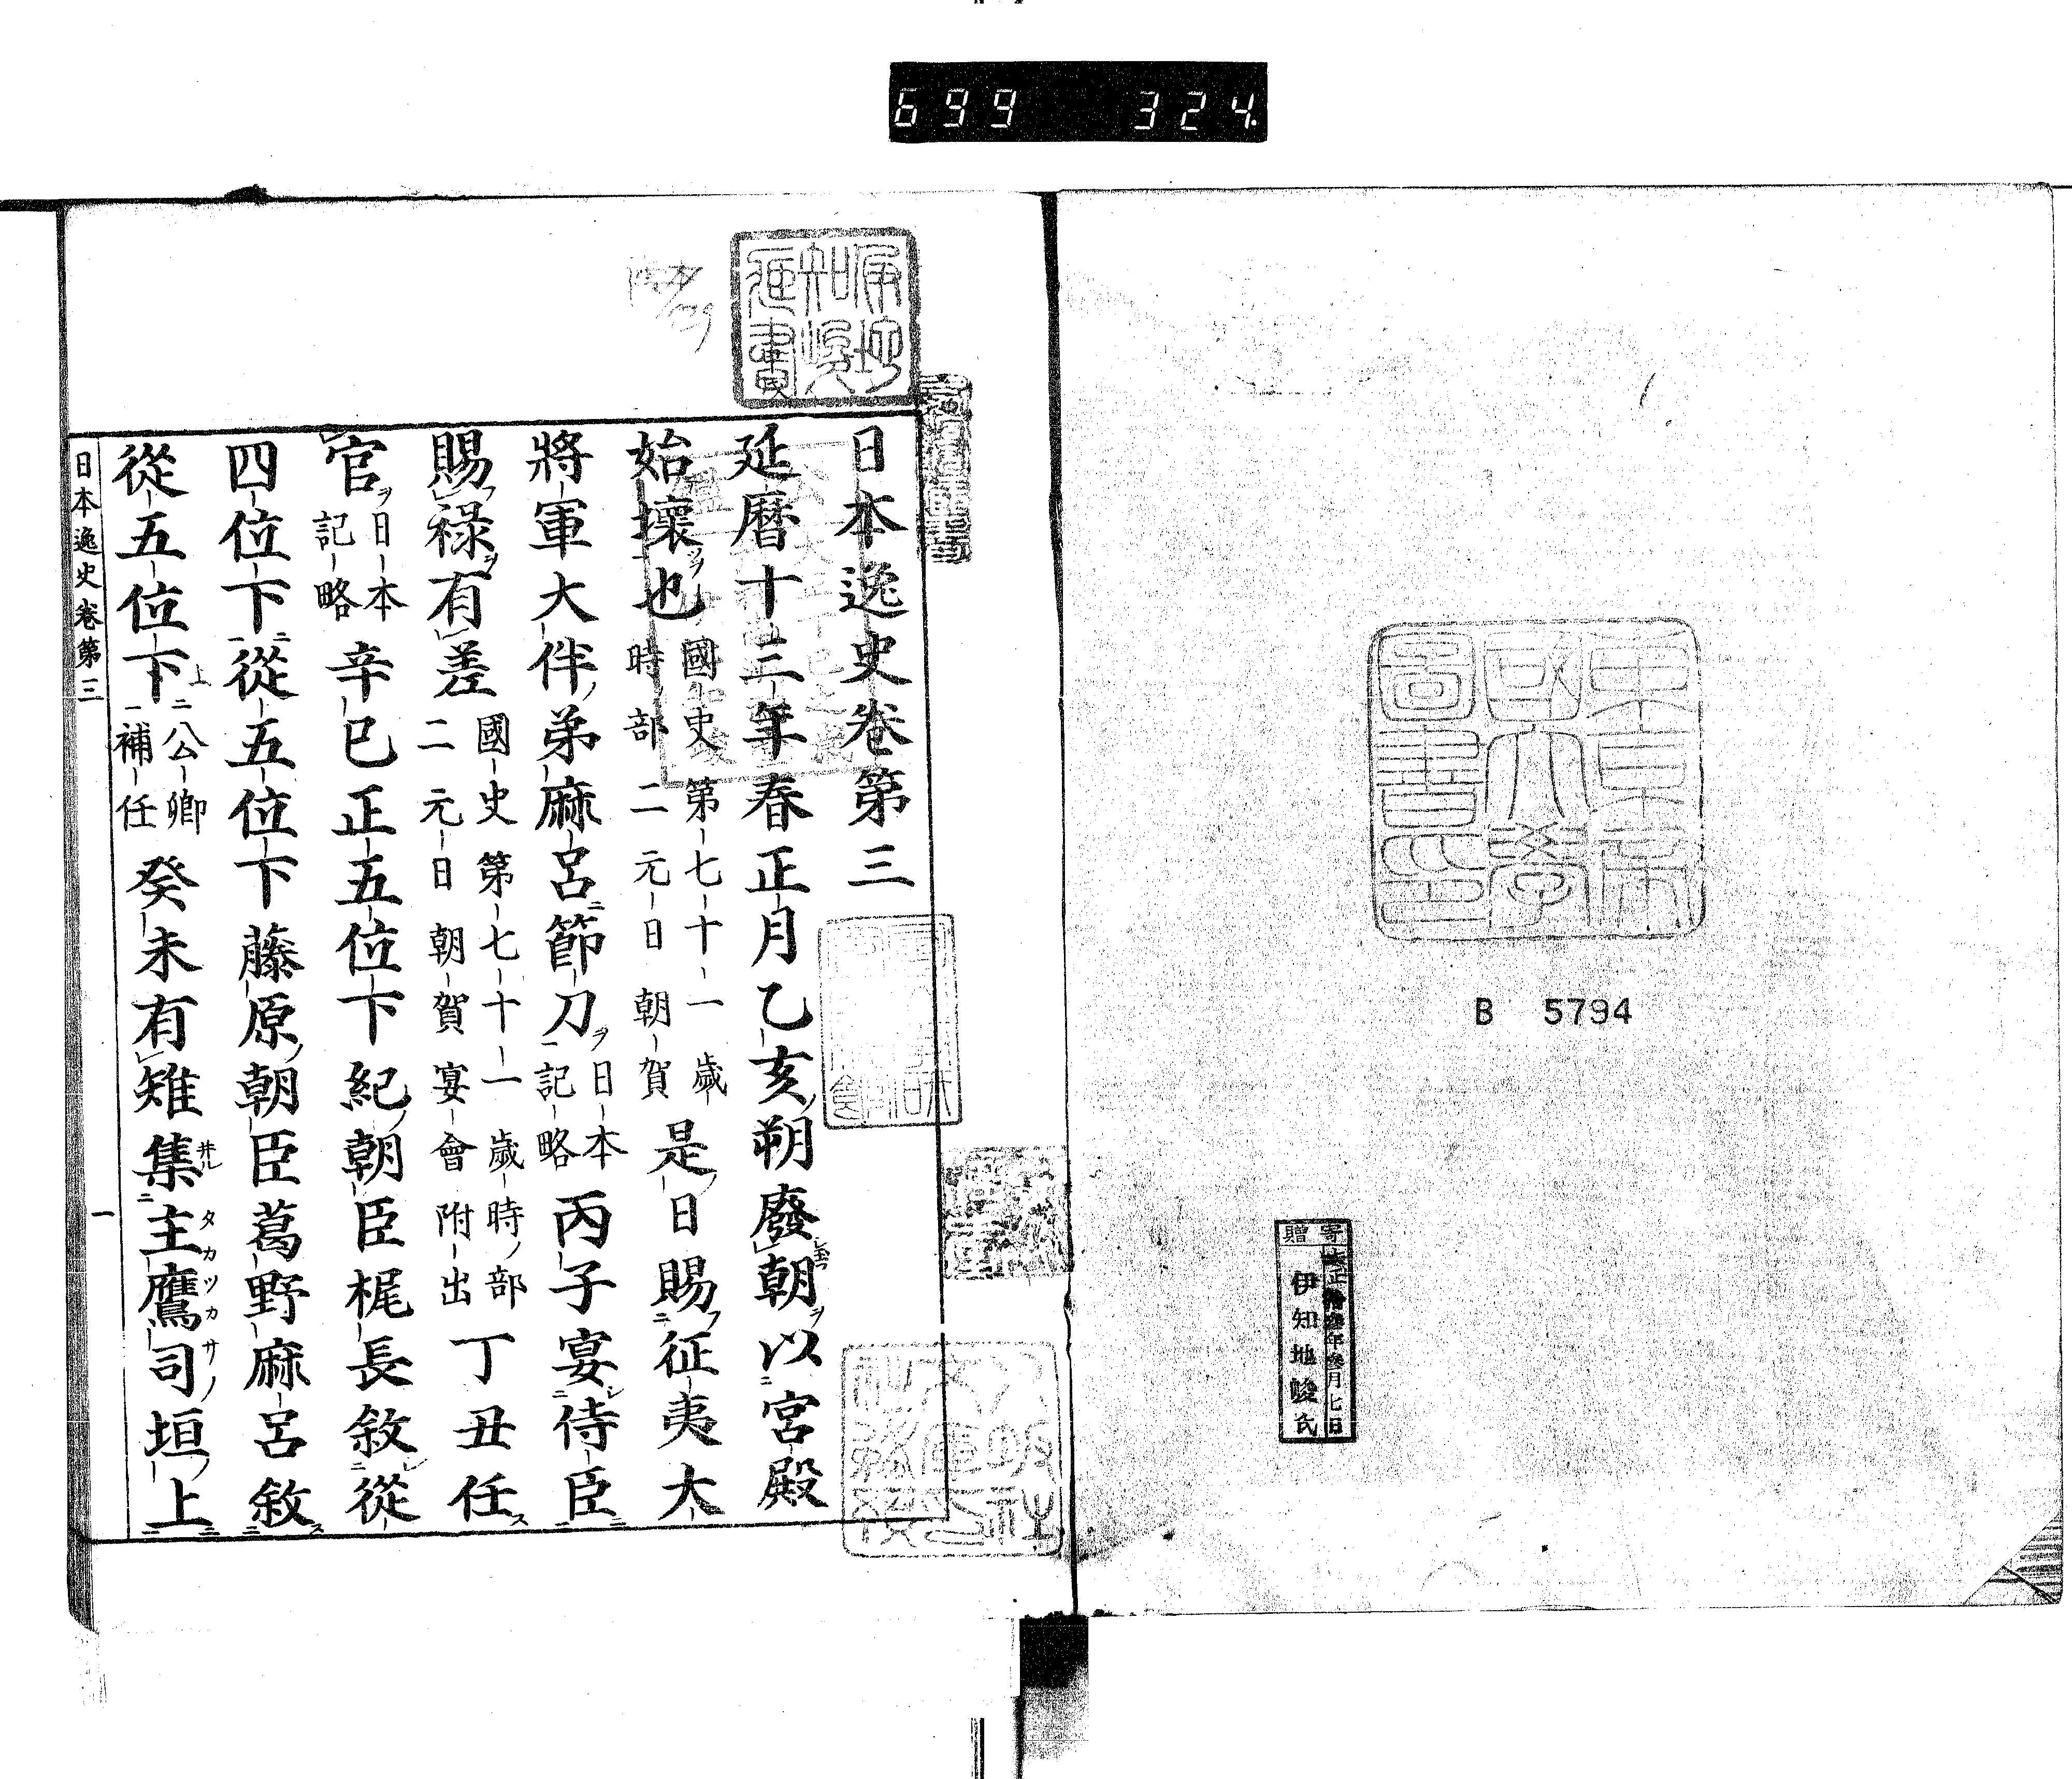 699 324
東京帝
國大學
圖書印
B 5794
寄贈
伊知地峻氏
日本逸史卷第三
延曆十三年春正月乙亥朔廢朝以宮殿
始壞也國史第七十一歲時部二元日朝賀是日賜征夷大
將軍大伴弟麻呂節刀日本記略丙子宴侍臣
賜祿有差國史第七十一歲時部二元日朝賀宴會附出丁丑任
官日本記略辛巳正五位下紀朝臣梶長敘從
四位下從五位下藤原朝臣葛野麻呂敘
從五位下上公卿補任癸未有雉集主鷹司垣上
日本逸史卷第三 一